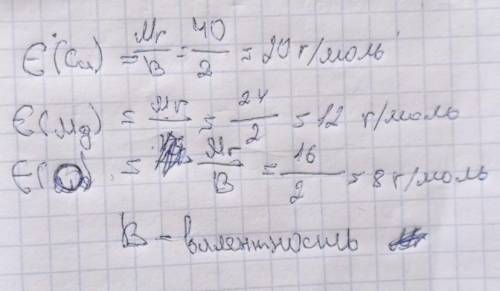 Є(Ca) = Mr/B = 40/2 = 20 г/моль
Є(Mg) = Mr/B = 24/2 = 12 г/моль
Є(O) = Mr/B = 16/2 = 8 г/моль
B - валентность